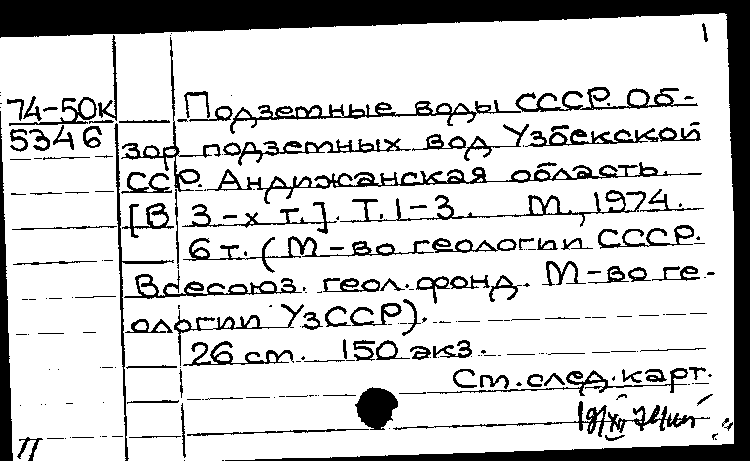 1
74-50к
5346
Подземные воды СССР. Об-
зор подземных вод Узбекской
ССР. Андижанская область.
[В 3-х т.]. Т. 1-3. М., 1974.
6 т. (М-во геологии СССР.
Всесоюз. геол. фонд. М-во ге-
ологии УзССР).
26 см. 150 экз.
См. след. карт.